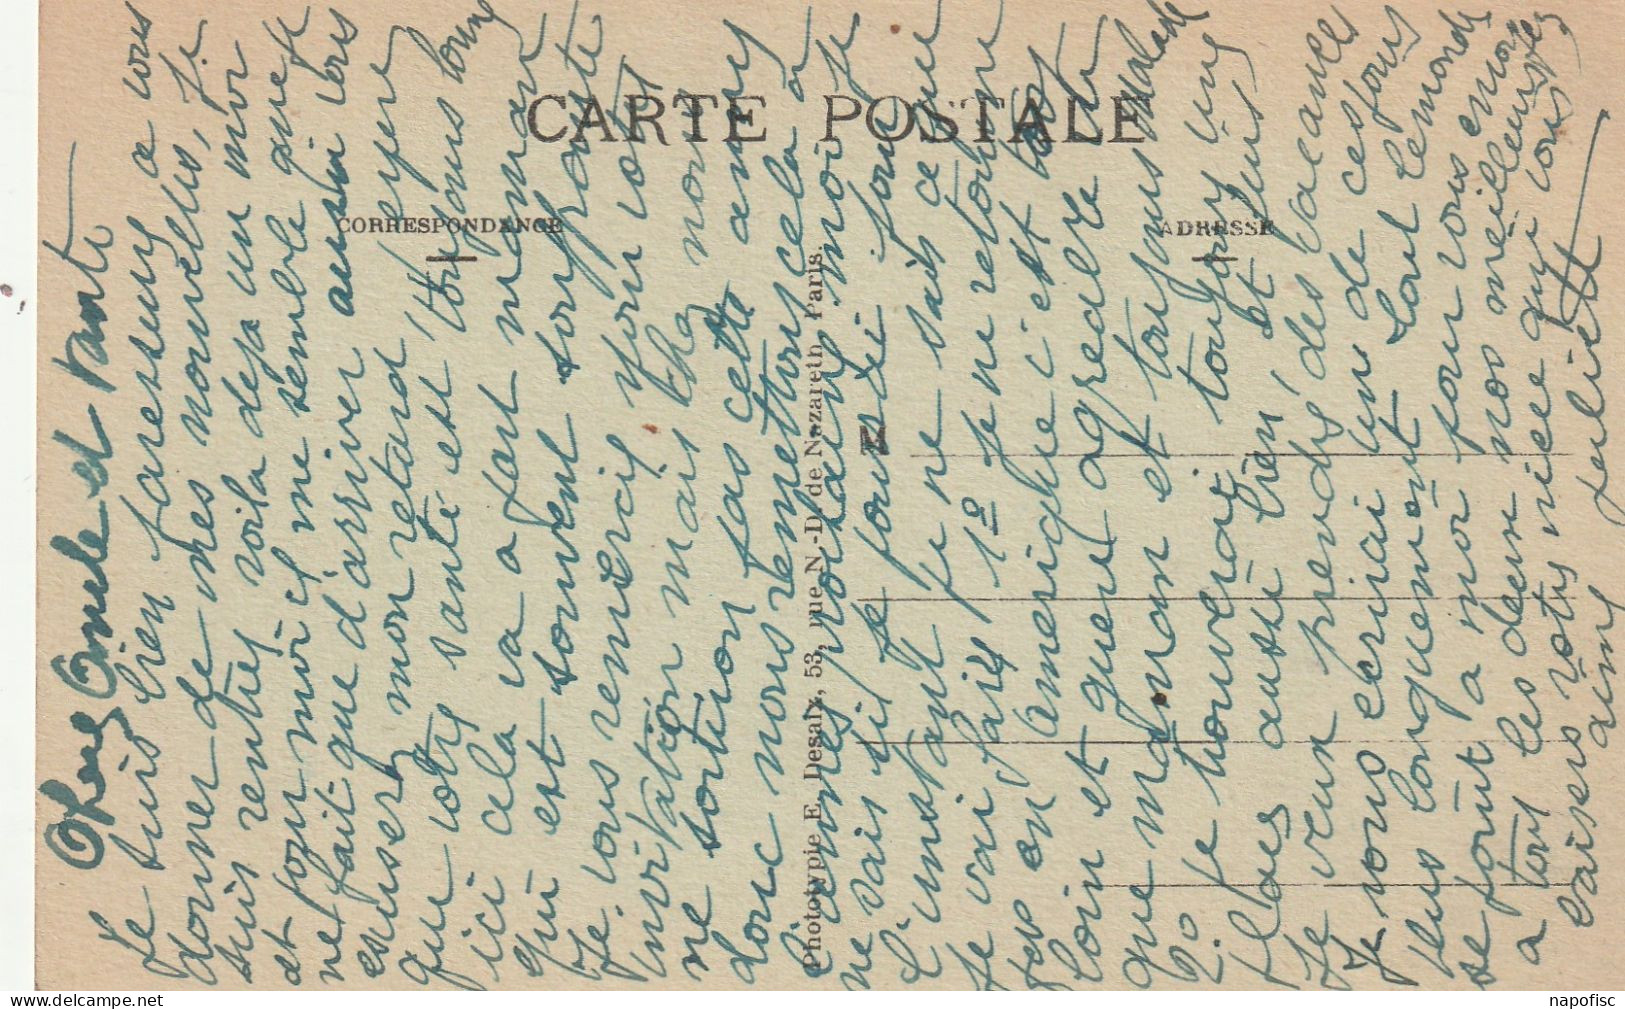 CARTE POSTALE
CORRESPONDANCE
ADRESSE
Phototypie E. Desaix, 53, rue N.-D. de Nazareth Paris.
M
Chers Oncle et Tante
Je suis bien paresseuse a vous
donner de mes nouvelles, je
suis rentrée voila deja un moi
et pour moi il me semble que je
ne fait que d'arriver aussi vous
excuserez mon retard j'espere
que votre santé est toujours bonne
ici cela va a part maman
qui est souvent souffrante
Je vous remercie pour votre
invitation mais nous
ne sortirons pas cette année
donc nous remettons cela à
l'année prochaine moi je
ne sais si je pourrai pour
l'instant je ne sais ce que
je vai faire 1o je ne retourne
pas en Amerique c'est trop
loin et guere agreable
que maman et toujours malade
2o je trouverai toujours une
place aussi bien et puis
Je veux prendre des vacances
Je vous ecrirai un de ces jours
plus longuement tout le monde
se joint a moi pour vous envoyer
a tous les deux nos meilleurs
baisers votre niece qui vous
aime Juliette
napofisc